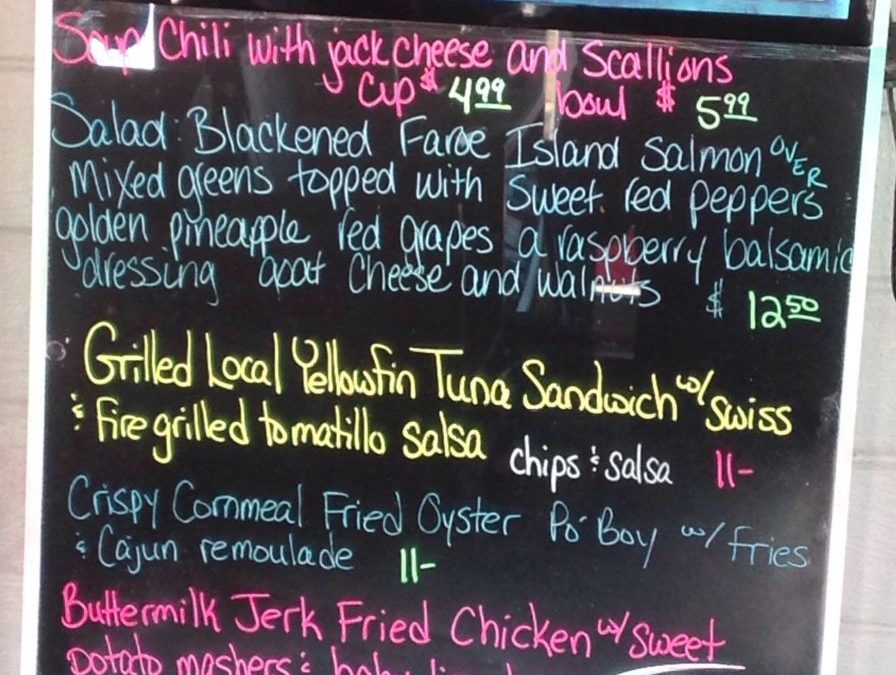 Soup Chili with jack cheese and Scallions
Cup $ 4.99 bowl $ 5.99
Salad: Blackened Faroe Island Salmon OVER
Mixed greens topped with Sweet red peppers
golden pineapple red grapes a raspberry balsamic
dressing goat Cheese and walnuts $ 12.50
Grilled Local Yellowfin Tuna Sandwich w/ Swiss
& fire grilled tomatillo salsa chips & salsa 11-
Crispy Cornmeal Fried Oyster Po' Boy w/ fries
& Cajun remoulade 11-
Buttermilk Jerk Fried Chicken w/ Sweet
potato mashers &